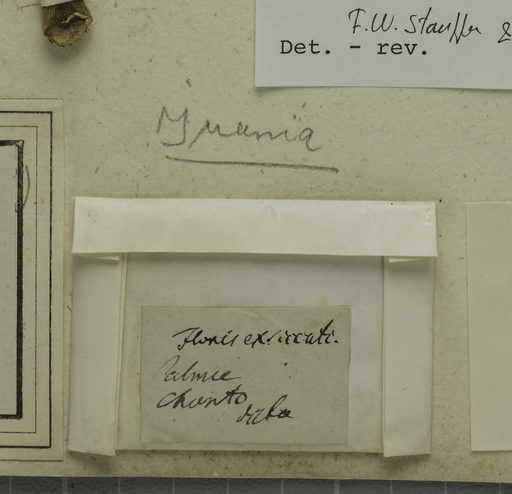 F.W. Stauffer &
Det. - rev.
Flores exsiccati.
Palmae
Chonto
dicta